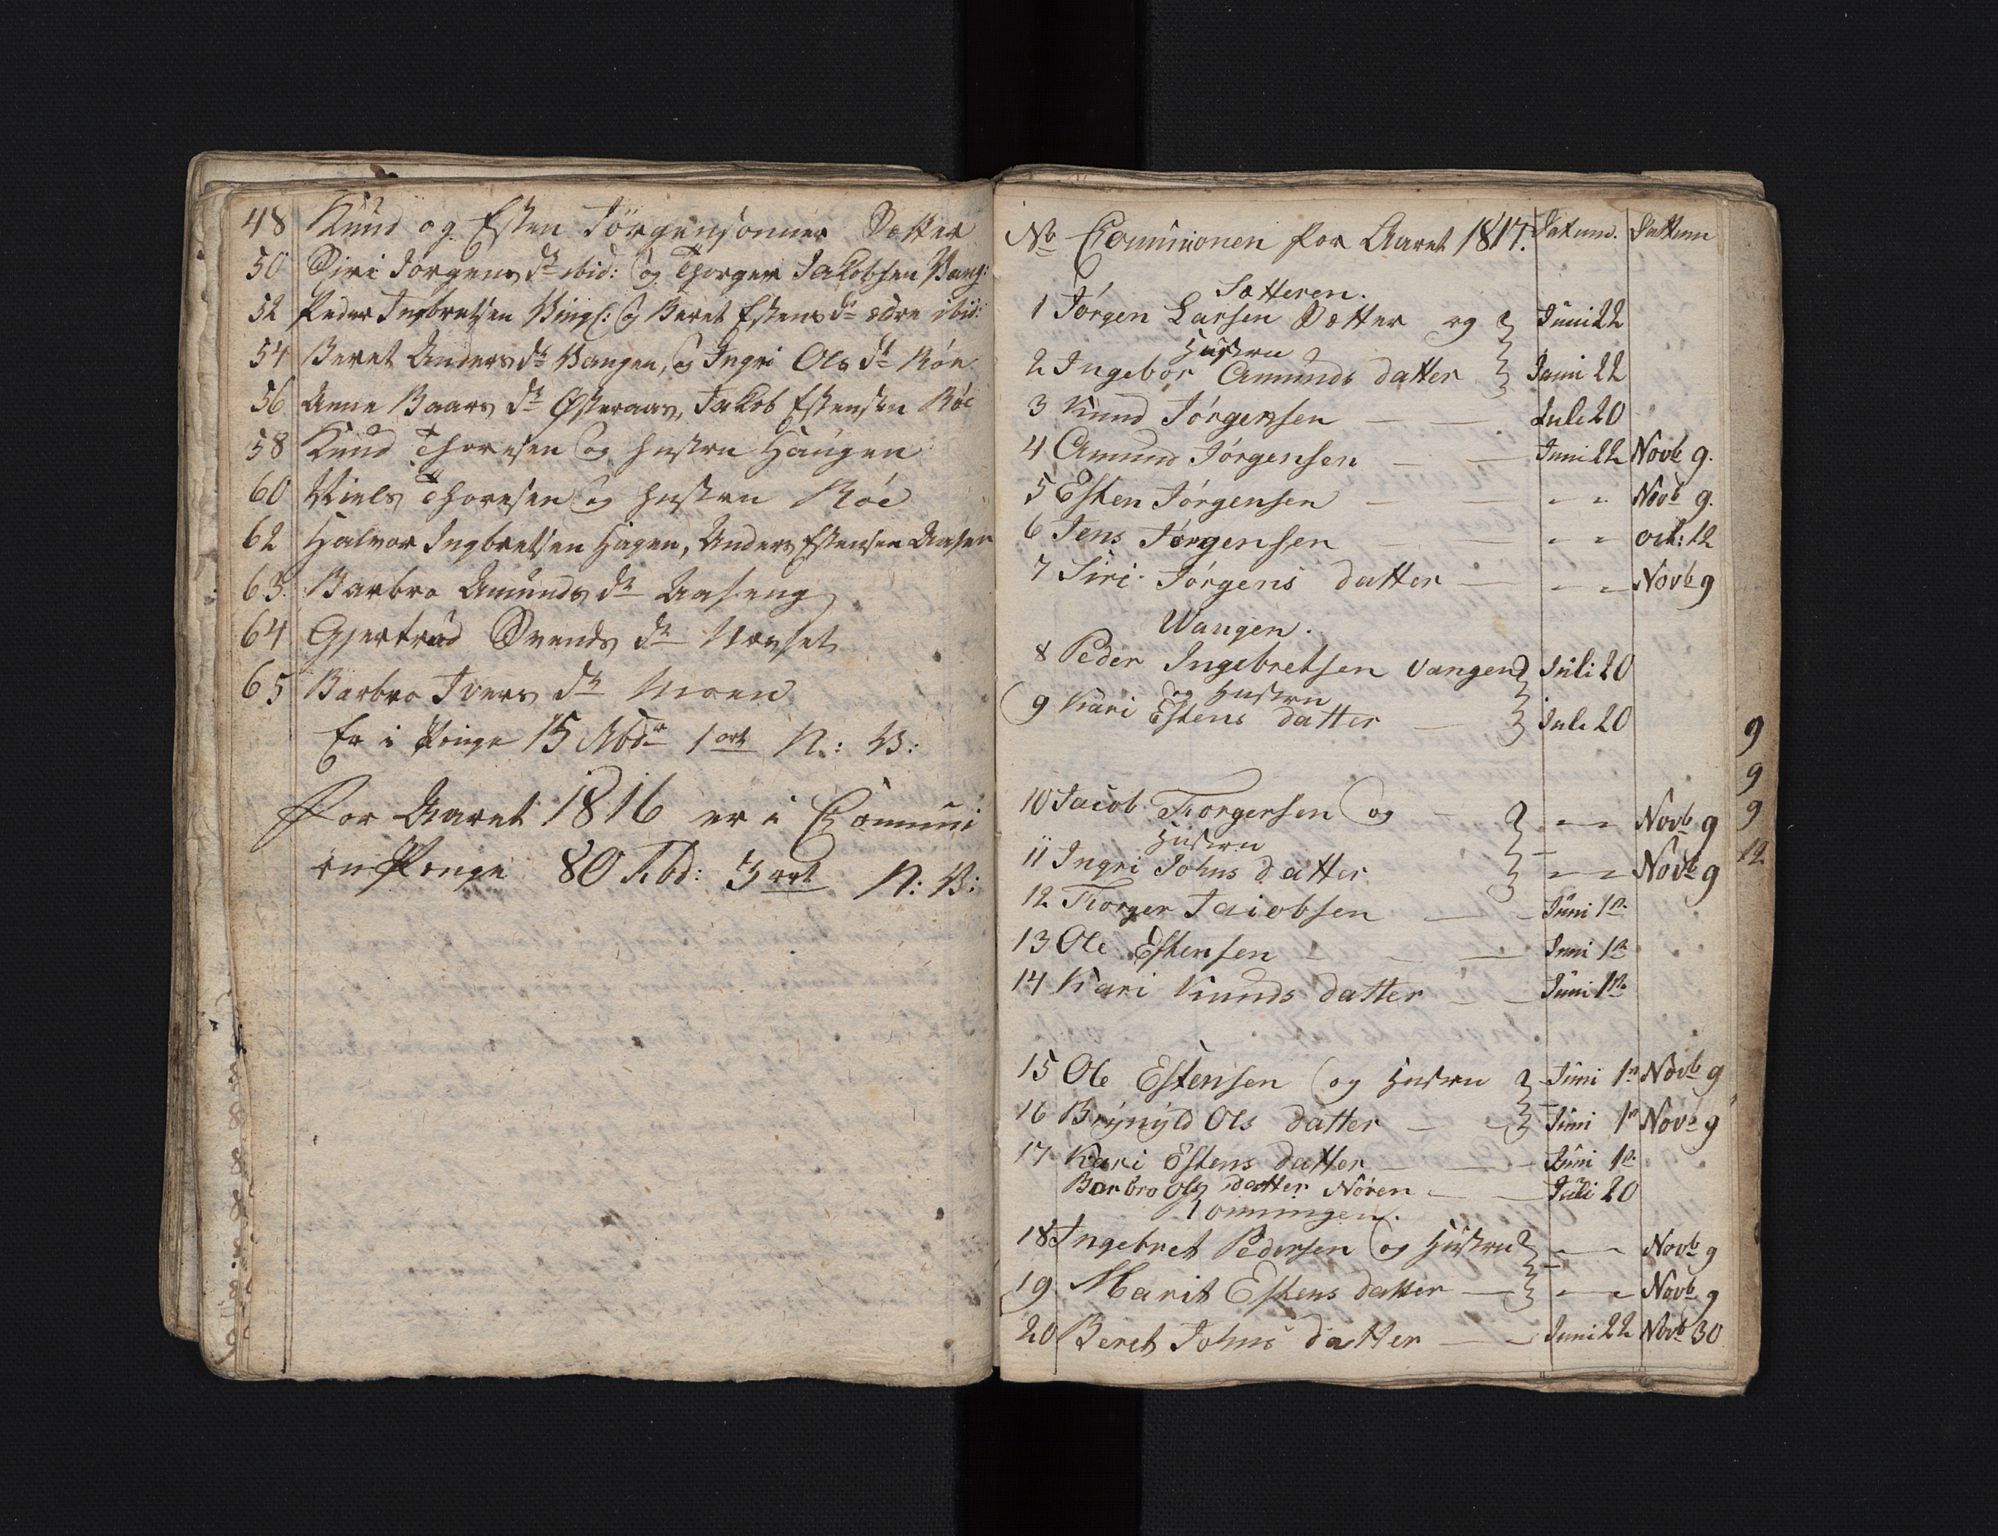 48 Knud og Esten Jörgensönner Sætter
50 Siri Jörgens dr ibid: og Thorger Jakobsen Vang:
52 Peder Ingbretsen Vingl: og Beret Estens dr ibid:
54 Beret Anders dr Vangen, og Ingri Ols dr Röe
56 Anne Baars dr Østeraas, Jakob Estensen Röe
58 Knud Thoresen og Hustru Haugen
60 Niels Thoresen og Hustru Röe
62 Halvor Ingbretsen Hagen, Anders Estensen Aasen
63. Barbro Amunds dr Aaseng
64 Gjertrud Svends dr Nævset
65 Barbro Ivers dr Moen
Er i Penge 15 Rbdr 1 ort N: V:
For Aaret 1816 er i Communi
en Penge 80 Rbd: 3 ort N: V:
No Communionen for Aaret 1817. Datum. Dattum
Sætteren.
1 Jörgen Larsen Sætter og Juni 22
Hustru
2 Ingebor Amunds datter Juni 22
3 Knud Jörgensen — — Juli 20
4 Amund Jörgensen — — Juni 22 Novb 9.
5 Esten Jörgensen — — „ „ Novb 9.
6 Jens Jörgensen — — „ „ oct: 12
7 Siri Jörgens datter — — „ „ Novb 9
Wangen.
8 Peder Ingebretsen Vangen Juli 20
og Hustru
9 Kari Estens datter — Juli 20
9
9
10 Jacob Torgersen og — „ „ Novb 9 9
Hustru
11 Ingri Johns datter „ „ Novb 9 12
12 Torger Jacobsen — — Juni 1n
13 Ole Estensen — — — Juni 1n
14 Kari Knuds datter — — Juni 1n
15 Ole Estensen og Hustru Juni 1n Novb 9
16 Brÿnÿld Ols datter — — Juni 1n Novb 9
17 Kari Estens datter — — — Juni 1n
Barbro Ols datter Nören — — Juli 20
18 Ingebret Pedersen og Hustru „ „ Novb 9
19 Marit Estens datter — „ „ Novb 9
20 Beret Johns datter — — Juni 22 Novb 30